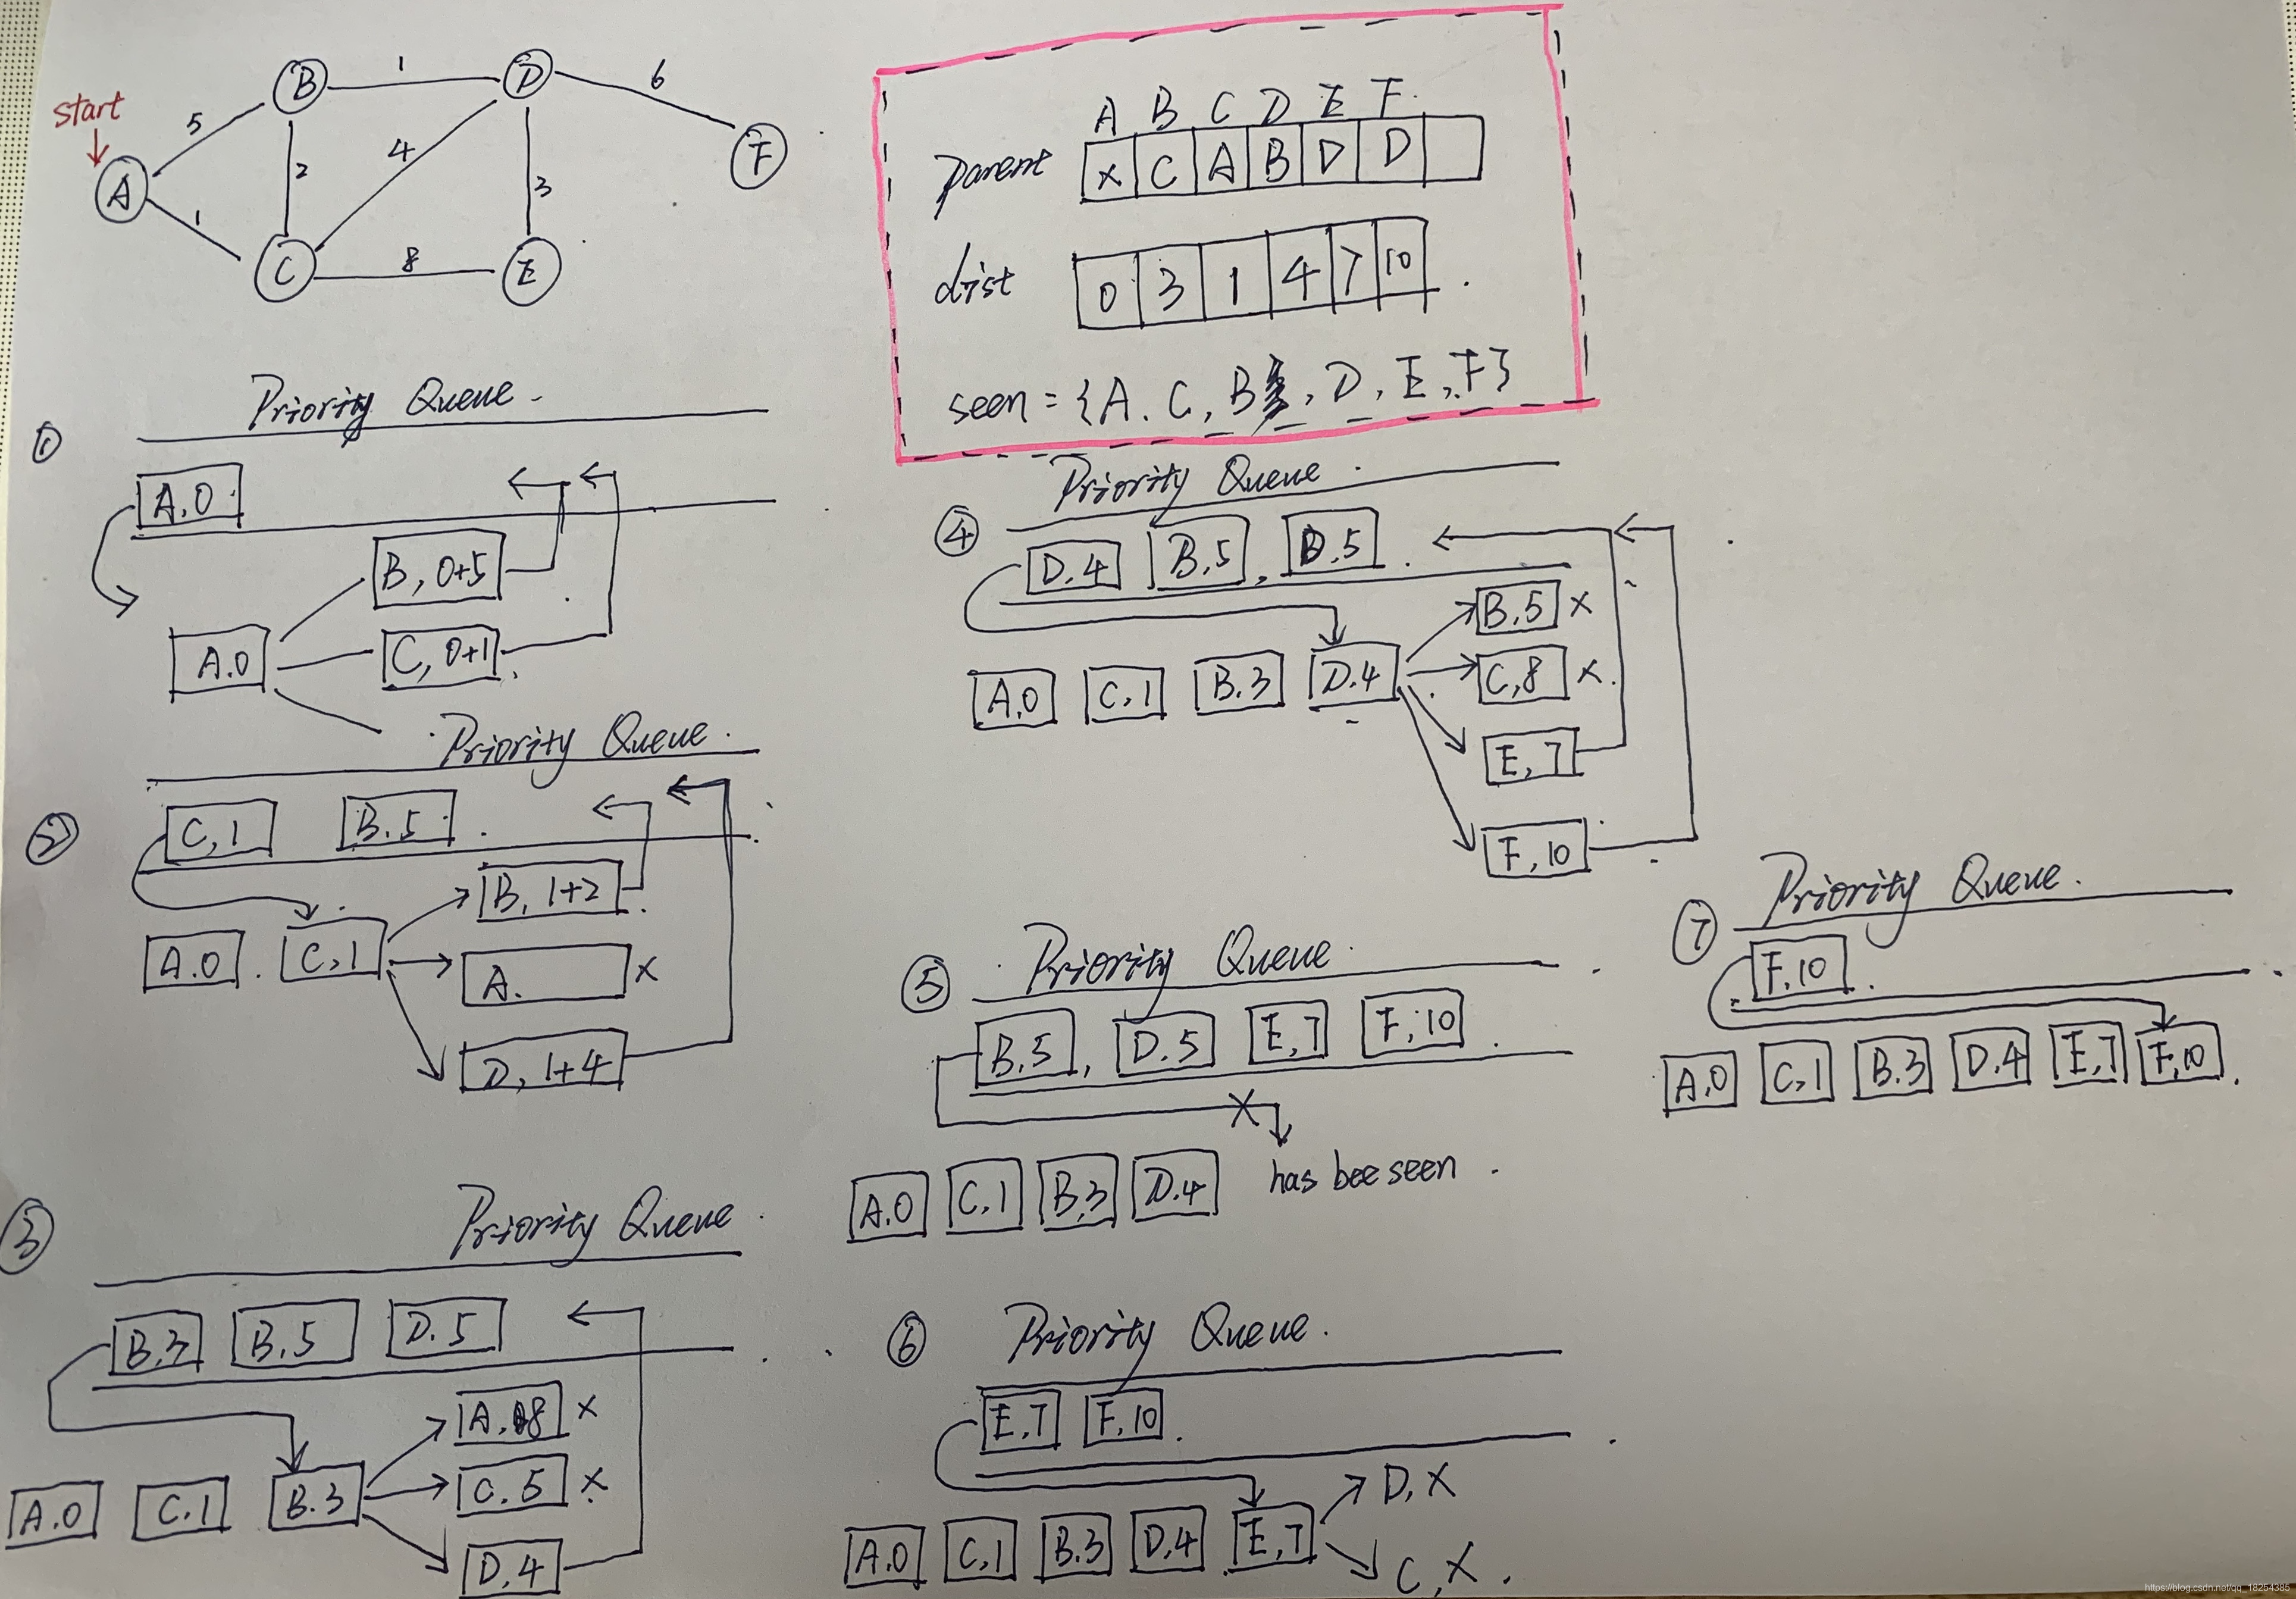 start
A
B
C
D
E
F
5
1
1
2
4
8
3
6
A B C D E F.
parent x C A B D D
dist 0 3 1 4 7 10 .
seen = {A. C, B, D, E, F}
①
Priority Queue
A,0
B, 0+5
A.0
C, 0+1
②
Priority Queue.
C,1 B.5
B, 1+2
A.0 C,1
A. x
D, 1+4
③
Priority Queue
B.3 B.5 D.5
A. 8 x
C.5 x
A.0 C.1 B.3
D.4
④
Priority Queue
D.4 B.5, D.5
B,5 x
C,8 x.
A,0 C,1 B.3 D.4
E, 7
F, 10
⑤
Priority Queue.
B.5, D.5 E,7 F,10
x
A.0 C,1 B.3 D.4 has bee seen
⑥
Priority Queue.
E,7 F,10
D, X
A.0 C,1 B.3 D.4 E,7
C, X.
⑦
Priority Queue.
F,10
A.0 C,1 B.3 D.4 E,7 F,10
https://blog.csdn.net/qq_18254385